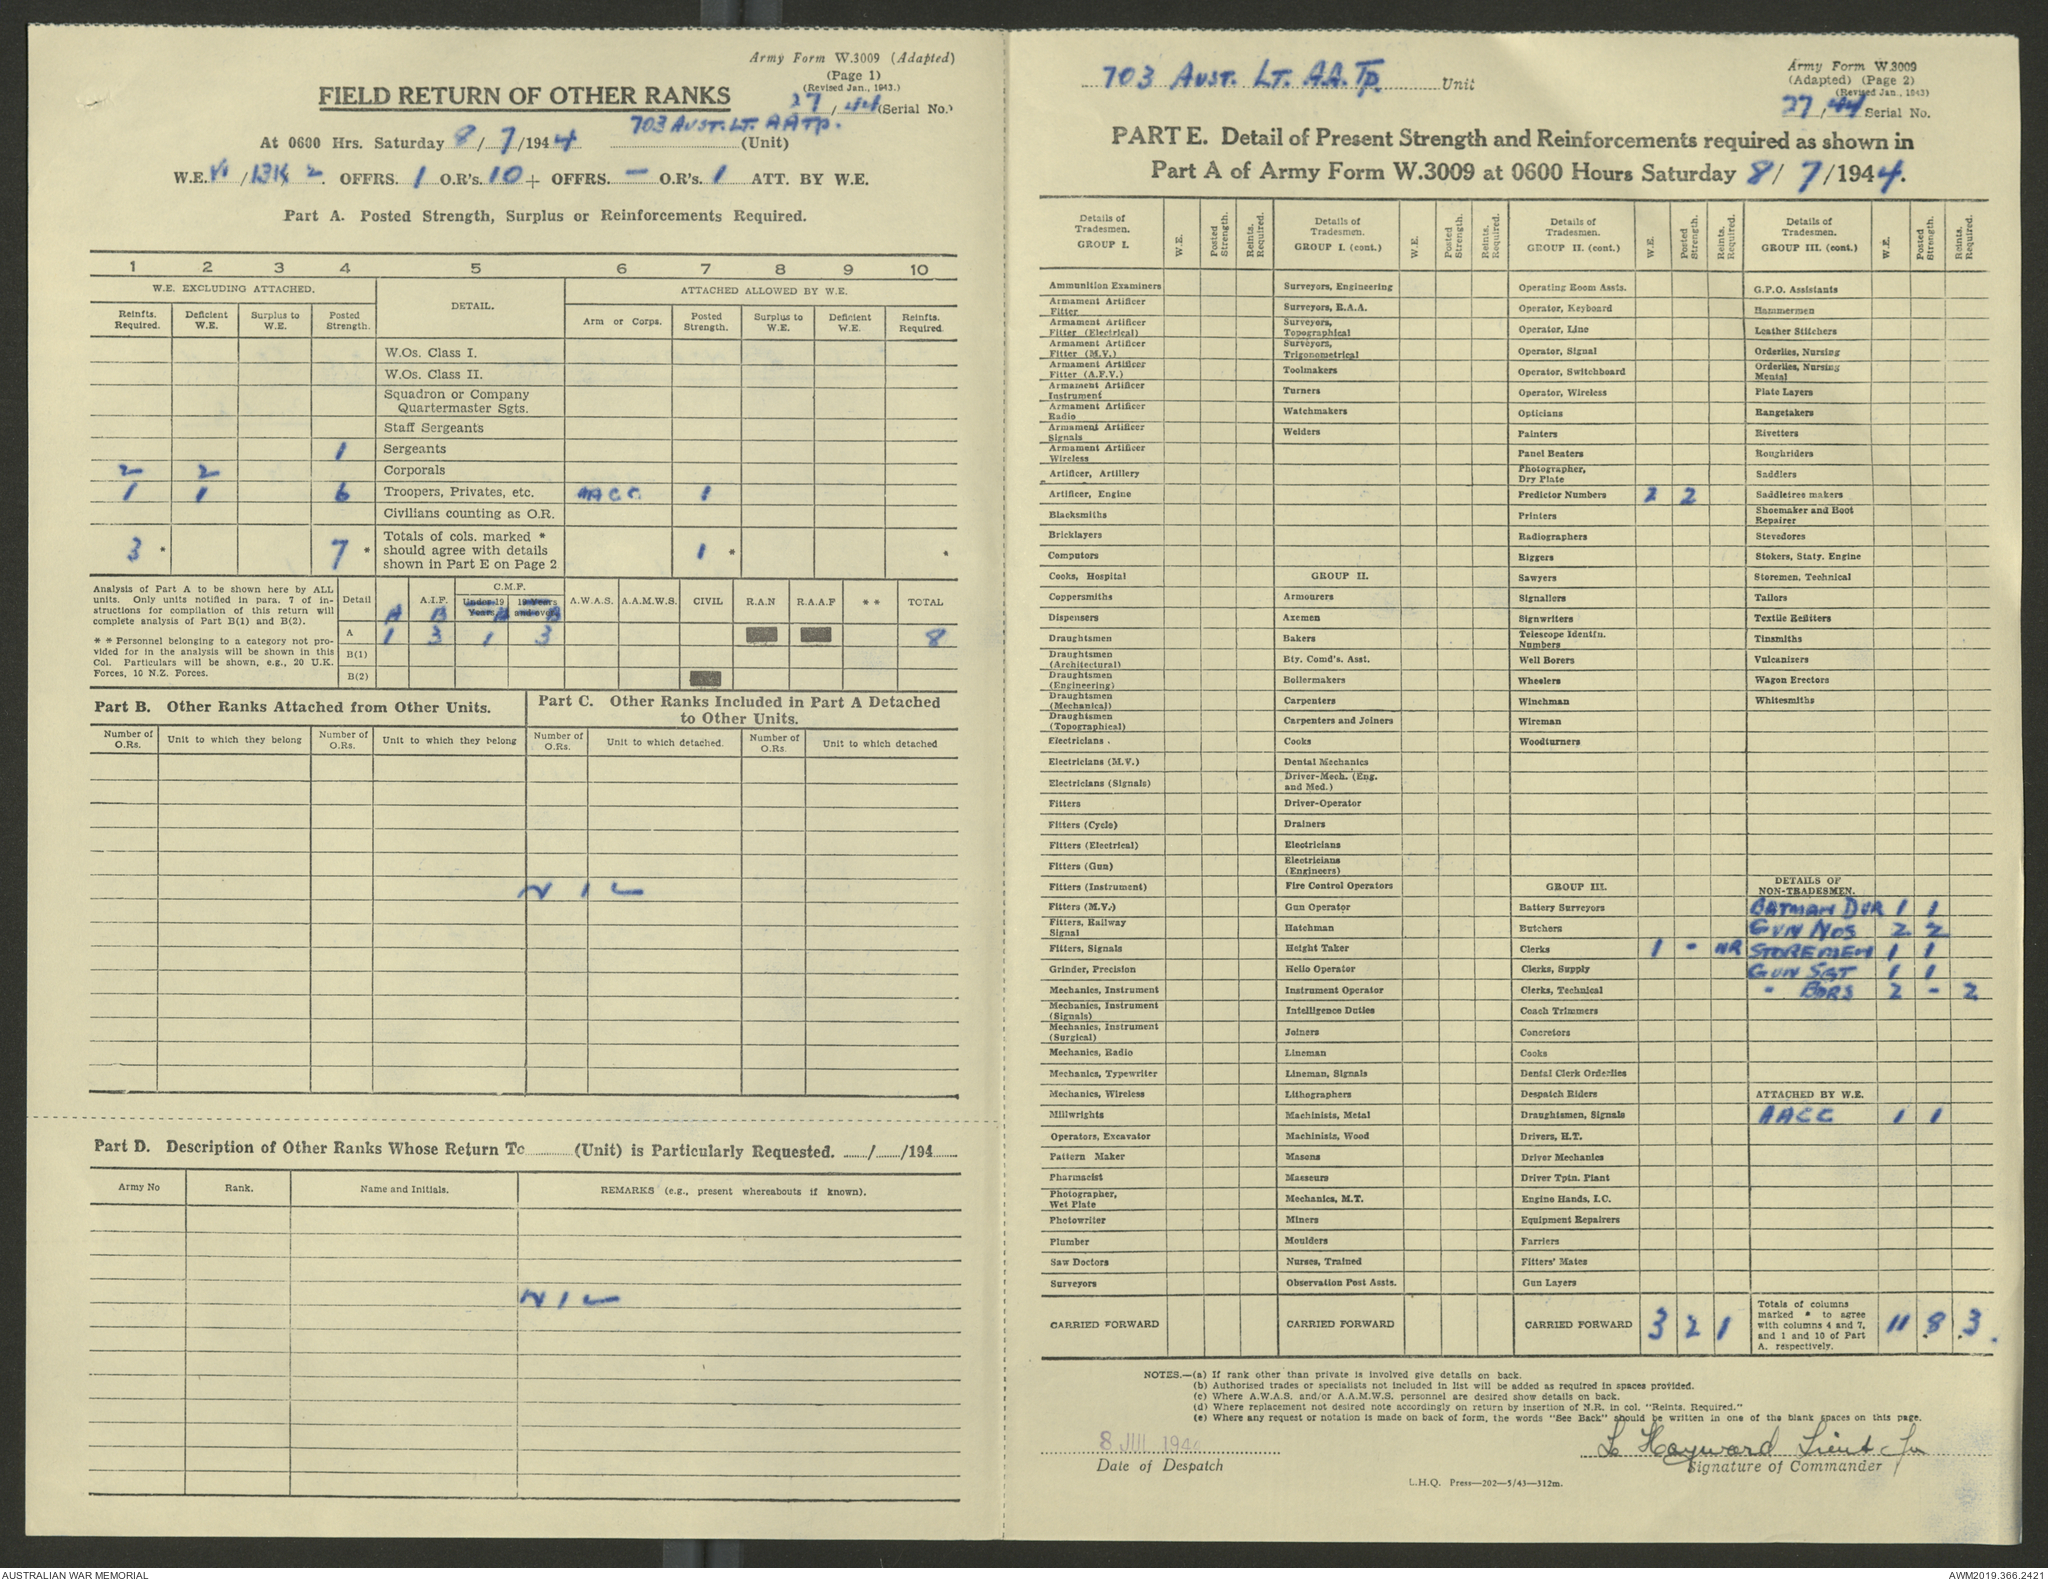 Army Form W.3009 (Adapted)
(Page 1)
(Revised Jan., 1943.)
FIELD RETURN OF OTHER RANKS
27/44 (Serial No.)
703 AUST. LT. AA TP.
At 0600 Hrs. Saturday 8/7/1944 (Unit)
W.E. VI/13K/2 OFFRS. 1 O.R's. 10 + OFFRS. — O.R's. 1 ATT. BY W.E.
Part A. Posted Strength, Surplus or Reinforcements Required.
1 2 3 4 5 6 7 8 9 10
W.E. EXCLUDING ATTACHED. DETAIL. ATTACHED ALLOWED BY W.E.
Reinfts. Required. Deficient W.E. Surplus to W.E. Posted Strength. Arm or Corps. Posted Strength. Surplus to W.E. Deficient W.E. Reinfts. Required.
W.Os. Class I.
W.Os. Class II.
Squadron or Company
Quartermaster Sgts.
Staff Sergeants
1 Sergeants
2 2 Corporals
1 1 6 Troopers, Privates, etc. AACC 1
Civilians counting as O.R.
3 * 7 * Totals of cols. marked * should agree with details shown in Part E on Page 2 1 * *
Analysis of Part A to be shown here by ALL
units. Only units notified in para. 7 of in-
structions for compilation of this return will
complete analysis of Part B(1) and B(2).
* * Personnel belonging to a category not pro-
vided for in the analysis will be shown in this
Col. Particulars will be shown, e.g., 20 U.K.
Forces, 10 N.Z. Forces.
Detail A.I.F. C.M.F. Under 19 Years 19 Years and over A.W.A.S. A.A.M.W.S. CIVIL R.A.N R.A.A.F * * TOTAL
A B A B
A 1 3 1 3 8
B(1)
B(2)
Part B. Other Ranks Attached from Other Units.
Part C. Other Ranks Included in Part A Detached
to Other Units.
Number of O.Rs. Unit to which they belong Number of O.Rs. Unit to which they belong Number of O.Rs. Unit to which detached. Number of O.Rs. Unit to which detached
NIL
Part D. Description of Other Ranks Whose Return To (Unit) is Particularly Requested. / /194
Army No Rank. Name and Initials. REMARKS (e.g., present whereabouts if known).
NIL
703 AUST. LT. A.A. TP. Unit
Army Form W.3009
(Adapted) (Page 2)
(Revised Jan., 1943)
27/44 Serial No.
PART E. Detail of Present Strength and Reinforcements required as shown in
Part A of Army Form W.3009 at 0600 Hours Saturday 8/7/1944.
Details of Tradesmen. GROUP I. W.E. Posted Strength. Reints. Required.
Ammunition Examiners
Armament Artificer Fitter
Armament Artificer Fitter (Electrical)
Armament Artificer Fitter (M.V.)
Armament Artificer Fitter (A.F.V.)
Armament Artificer Instrument
Armament Artificer Radio
Armament Artificer Signals
Armament Artificer Wireless
Artificer, Artillery
Artificer, Engine
Blacksmiths
Bricklayers
Computors
Cooks, Hospital
Coppersmiths
Dispensers
Draughtsmen
Draughtsmen (Architectural)
Draughtsmen (Engineering)
Draughtsmen (Mechanical)
Draughtsmen (Topographical)
Electricians .
Electricians (M.V.)
Electricians (Signals)
Fitters
Fitters (Cycle)
Fitters (Electrical)
Fitters (Gun)
Fitters (Instrument)
Fitters (M.V.)
Fitters, Railway Signal
Fitters, Signals
Grinder, Precision
Mechanics, Instrument
Mechanics, Instrument (Signals)
Mechanics, Instrument (Surgical)
Mechanics, Radio
Mechanics, Typewriter
Mechanics, Wireless
Millwrights
Operators, Excavator
Pattern Maker
Pharmacist
Photographer, Wet Plate
Photowriter
Plumber
Saw Doctors
Surveyors
CARRIED FORWARD
Details of Tradesmen. GROUP I. (cont.) W.E. Posted Strength. Reints. Required.
Surveyors, Engineering
Surveyors, R.A.A.
Surveyors, Topographical
Surveyors, Trigonometrical
Toolmakers
Turners
Watchmakers
Welders
GROUP II.
Armourers
Axemen
Bakers
Bty. Comd's. Asst.
Boilermakers
Carpenters
Carpenters and Joiners
Cooks
Dental Mechanics
Driver-Mech. (Eng. and Med.)
Driver-Operator
Drainers
Electricians
Electricians (Engineers)
Fire Control Operators
Gun Operator
Hatchman
Height Taker
Hello Operator
Instrument Operator
Intelligence Duties
Joiners
Lineman
Lineman, Signals
Lithographers
Machinists, Metal
Machinists, Wood
Masons
Masseurs
Mechanics, M.T.
Miners
Moulders
Nurses, Trained
Observation Post Assts.
CARRIED FORWARD
Details of Tradesmen. GROUP II. (cont.) W.E. Posted Strength. Reints. Required.
Operating Room Assts.
Operator, Keyboard
Operator, Line
Operator, Signal
Operator, Switchboard
Operator, Wireless
Opticians
Painters
Panel Beaters
Photographer, Dry Plate
Predictor Numbers 2 2
Printers
Radiographers
Riggers
Sawyers
Signallers
Signwriters
Telescope Identfn. Numbers
Well Borers
Wheelers
Winchman
Wireman
Woodturners
GROUP III.
Battery Surveyors
Butchers
Clerks 1 - NR
Clerks, Supply
Clerks, Technical
Coach Trimmers
Concretors
Cooks
Dental Clerk Orderlies
Despatch Riders
Draughtsmen, Signals
Drivers, H.T.
Driver Mechanics
Driver Tptn. Plant
Engine Hands, I.C.
Equipment Repairers
Farriers
Fitters' Mates
Gun Layers
CARRIED FORWARD 3 2 1
Details of Tradesmen. GROUP III. (cont.) W.E. Posted Strength. Reints. Required.
G.P.O. Assistants
Hammermen
Leather Stitchers
Orderlies, Nursing
Orderlies, Nursing Mental
Plate Layers
Rangetakers
Rivetters
Roughriders
Saddlers
Saddletree makers
Shoemaker and Boot Repairer
Stevedores
Stokers, Staty. Engine
Storemen, Technical
Tailors
Textile Refitters
Tinsmiths
Vulcanizers
Wagon Erectors
Whitesmiths
DETAILS OF NON-TRADESMEN.
BATMAN DVR 1 1
GUN NOS 2 2
STOREMEN 1 1
GUN SGT 1 1
" BDRS 2 - 2
ATTACHED BY W.E.
AACC 1 1
Totals of columns marked * to agree with columns 4 and 7, and 1 and 10 of Part A. respectively. 11 8 3
NOTES.—(a) If rank other than private is involved give details on back.
(b) Authorised trades or specialists not included in list will be added as required in spaces provided.
(c) Where A.W.A.S. and/or A.A.M.W.S. personnel are desired show details on back.
(d) Where replacement not desired note accordingly on return by insertion of N.R. in col. "Reints. Required."
(e) Where any request or notation is made on back of form, the words "See Back" should be written in one of the blank spaces on this page.
8 JUL 1944
L Hayward Lieut for
Date of Despatch
Signature of Commander
L.H.Q. Press—202—5/43—312m.
AUSTRALIAN WAR MEMORIAL
AWM2019.366.2421